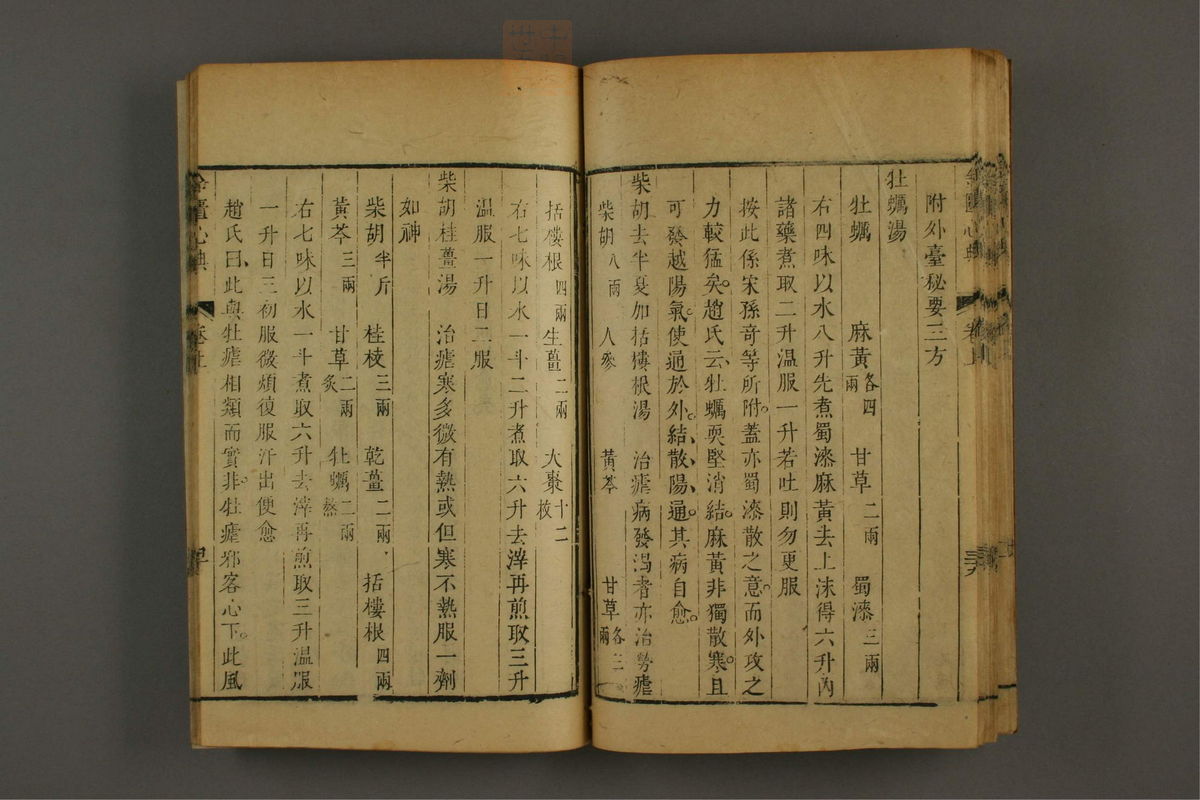 附外臺秘要三方
牡蠣湯
牡蠣 麻黃各四兩 甘草二兩 蜀漆三兩
右四味以水八升先煮蜀漆麻黃去上沫得六升內
諸藥煮取二升温服一升若吐則勿更服
按此係宋孫奇等所附。蓋亦蜀漆散之意。而外攻之
力較猛矣。趙氏云、牡蠣耎堅消結。麻黃非獨散寒。且
可發越陽氣。使通於外。結散陽通。其病自愈。
柴胡去半夏加括樓根湯 治瘧病發渴者亦治勞瘧
柴胡八兩 人參 黃芩 甘草各三兩
括樓根四兩 生薑二兩 大棗十二枚
右七味以水一斗二升煮取六升去滓再煎取三升
温服一升日二服
柴胡桂薑湯 治瘧寒多微有熱或但寒不熱服一劑
如神
柴胡半斤 桂枝三兩 乾薑二兩 括樓根四兩
黃芩三兩 甘草二兩炙 牡蠣二兩熬
右七味以水一斗煮取六升去滓再煎取三升温服
一升日三初服微煩復服汗出便愈
趙氏曰、此與牡瘧相類而實非。牡瘧邪客心下。此風
金匱心典 卷上